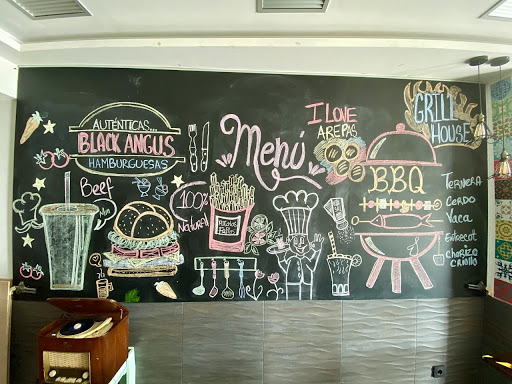 AUTÉNTICAS...
BLACK ANGUS
HAMBURGUESAS
Beef
100%
Natural
Menú
I LOVE
AREPAS
GRILL
HOUSE
BBQ
TERNERA
Cerdo
Vaca
Entrecot
CHORIZO
CRIOLLO